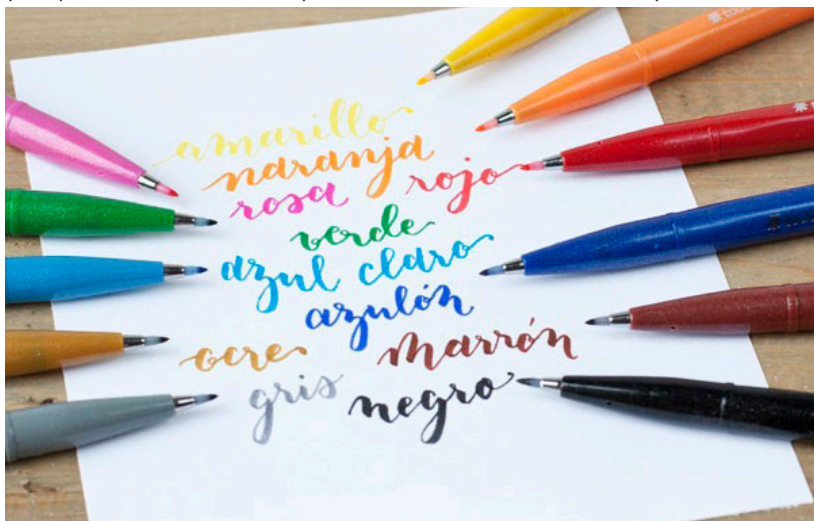 amarillo
naranja
rosa rojo
verde
azul claro
azulón
ocre marrón
gris negro